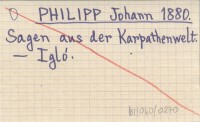 PHILIPP Johann 1880.
Sagen aus der Karpathenwelt.
— Igló.